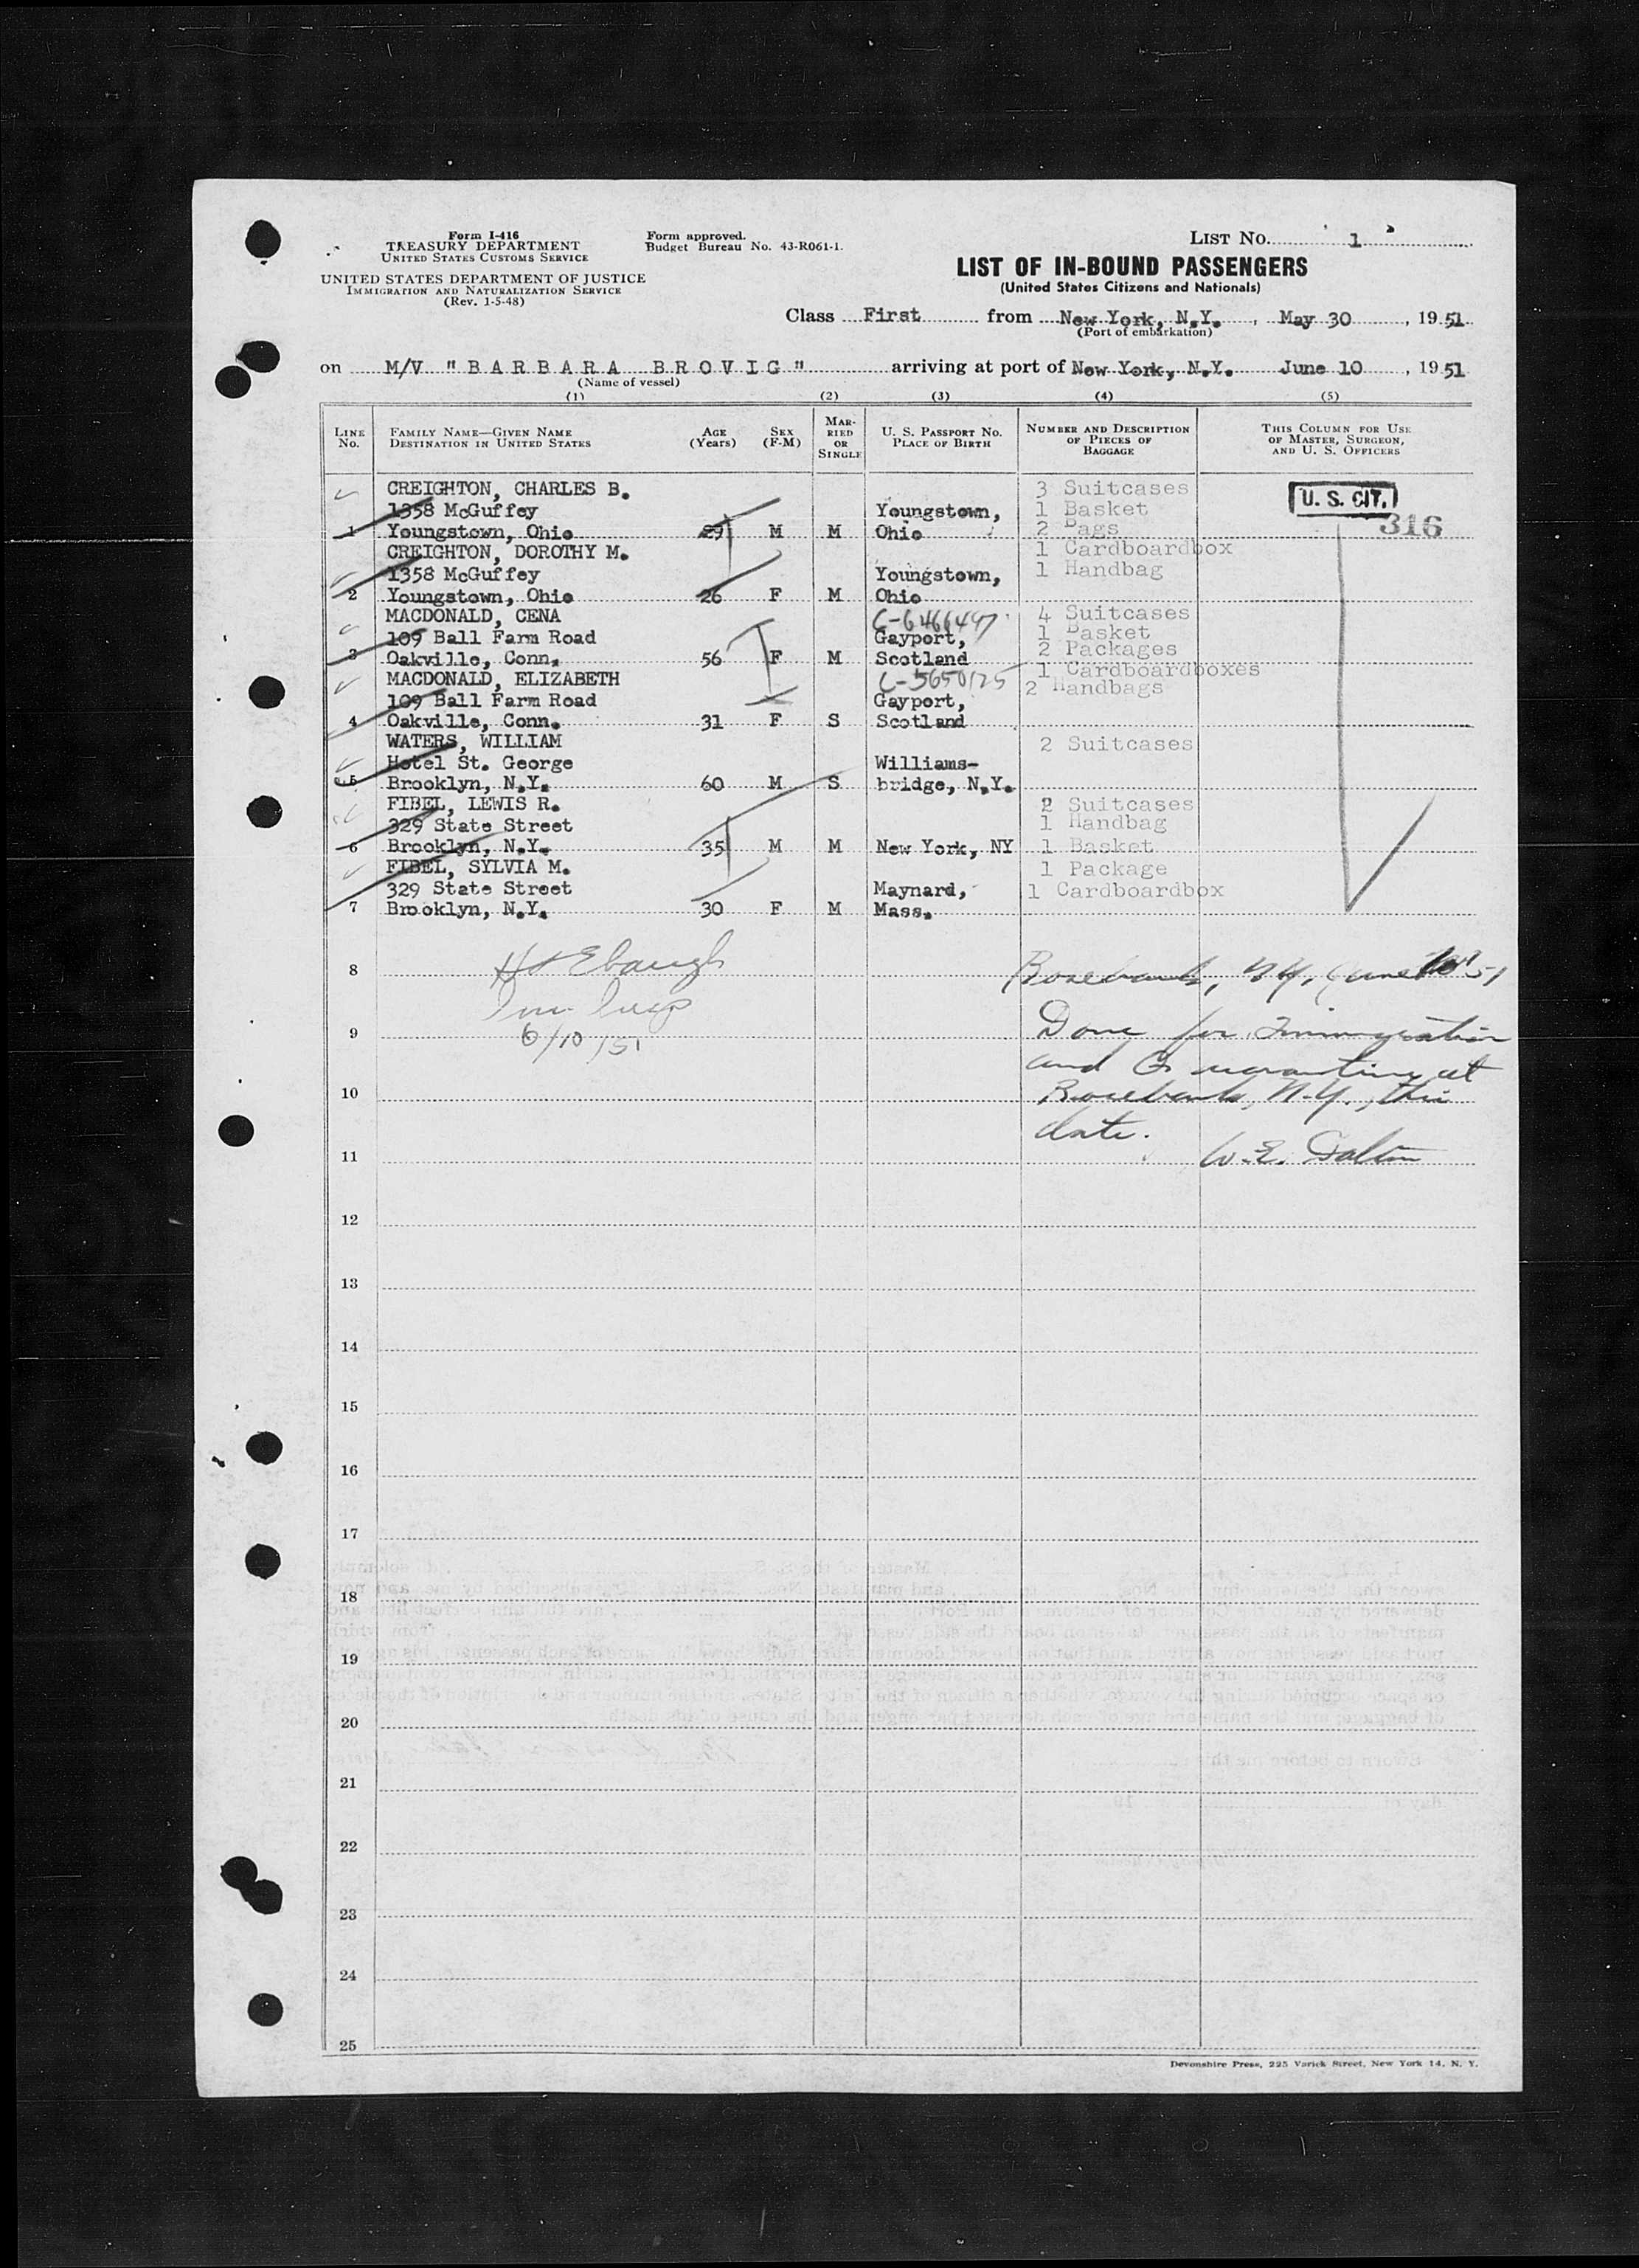 Form I-416
TREASURY DEPARTMENT
UNITED STATES CUSTOMS SERVICE
UNITED STATES DEPARTMENT OF JUSTICE
IMMIGRATION AND NATURALIZATION SERVICE
(Rev. 1-5-48)
Form approved.
Budget Bureau No. 43-R061-1.
LIST No. 1
LIST OF IN-BOUND PASSENGERS
(United States Citizens and Nationals)
Class First from New York, N.Y., May 30, 1951
(Port of embarkation)
on M/V "BARBARA BROVIG" arriving at port of New York, N.Y. June 10, 1951
(Name of vessel)
(1) (2) (3) (4) (5)
LINE No. FAMILY NAME—GIVEN NAME DESTINATION IN UNITED STATES AGE (Years) SEX (F-M) MARRIED OR SINGLE U. S. PASSPORT No. PLACE OF BIRTH NUMBER AND DESCRIPTION OF PIECES OF BAGGAGE THIS COLUMN FOR USE OF MASTER, SURGEON, AND U. S. OFFICERS
CREIGHTON, CHARLES B. 3 Suitcases U. S. CIT.
1358 McGuffey Youngstown, 1 Basket
1 Youngstown, Ohio 29 M M Ohio 2 Bags 316
CREIGHTON, DOROTHY M. 1 Cardboardbox
1358 McGuffey Youngstown, 1 Handbag
2 Youngstown, Ohio 26 F M Ohio
MACDONALD, CENA C-6466497 4 Suitcases
109 Ball Farm Road Gayport, 1 Basket
3 Oakville, Conn. 56 F M Scotland 2 Packages
MACDONALD, ELIZABETH C-5650125 1 Cardboardboxes
109 Ball Farm Road Gayport, 2 Handbags
4 Oakville, Conn. 31 F S Scotland
WATERS, WILLIAM 2 Suitcases
Hotel St. George Williams-
5 Brooklyn, N.Y. 60 M S bridge, N.Y.
FIBEL, LEWIS R. 2 Suitcases
329 State Street 1 Handbag
6 Brooklyn, N.Y. 35 M M New York, NY 1 Basket
FIBEL, SYLVIA M. 1 Package
329 State Street Maynard, 1 Cardboardbox
7 Brooklyn, N.Y. 30 F M Mass.
8 Ebaugh Rosebank, N.Y. June 10 51
Imm. Insp
9 6/10/51 Done for Immigration
and Quarantine at
10 Rosebank, N.Y., this
date.
11 W. E. Dalton
12
13
14
15
16
17
18
19
20
21
22
23
24
25
Devonshire Press, 225 Varick Street, New York 14, N. Y.